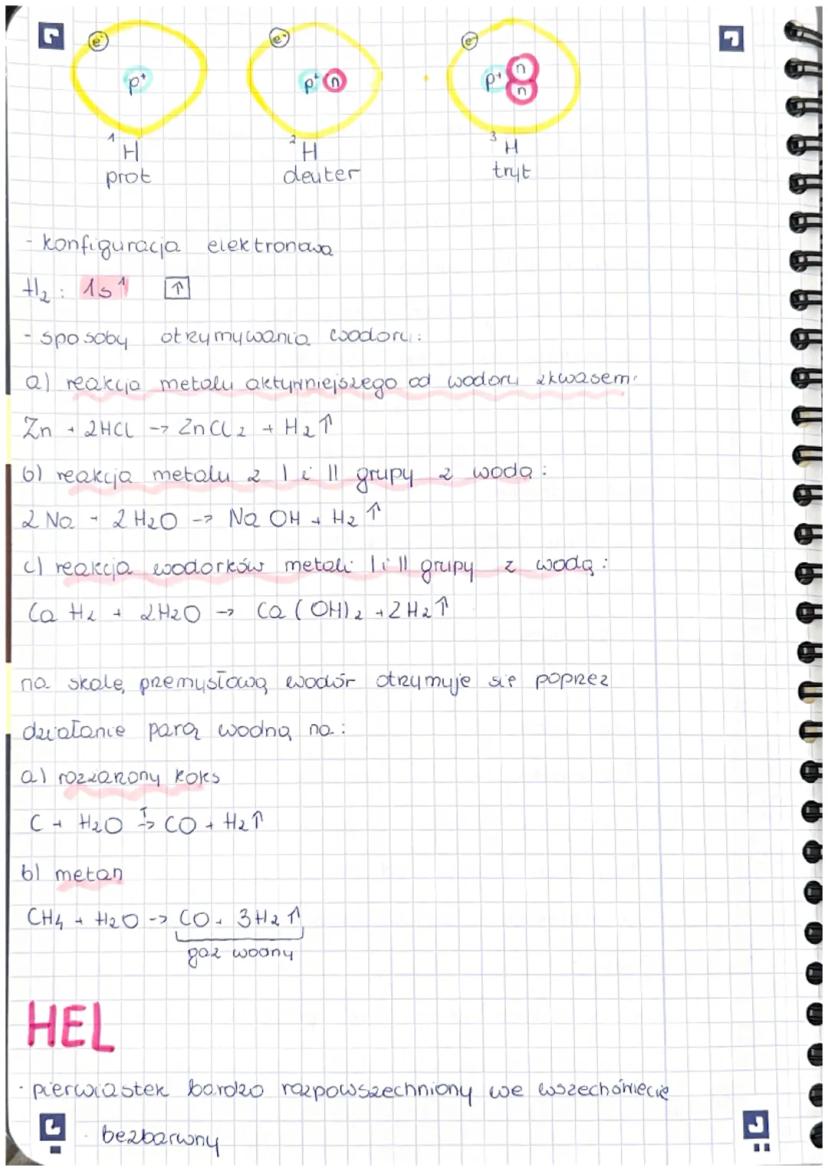 e⁻ e⁻ e⁻
p⁺ p⁺ n p⁺ n n
¹H ²H ³H
prot deuter tryt
- konfiguracja elektronowa
H₂: 1s¹ ↑
- sposoby otrzymywania wodoru:
a) reakcja metalu aktywniejszego od wodoru z kwasem:
Zn + 2HCl -> ZnCl₂ + H₂↑
b) reakcja metalu z I i II grupy z wodą:
2 Na + 2H₂O -> NaOH + H₂↑
c) reakcja wodorków metali I i II grupy z wodą:
CaH₂ + 2H₂O -> Ca(OH)₂ + 2H₂↑
na skalę przemysłową wodór otrzymuje się poprzez
działanie parą wodną na:
a) rozżarzony koks
C + H₂O T-> CO + H₂↑
b) metan
CH₄ + H₂O -> CO + 3H₂↑
gaz wodny
HEL
· pierwiastek bardzo rozpowszechniony we wszechświecie
· bezbarwny